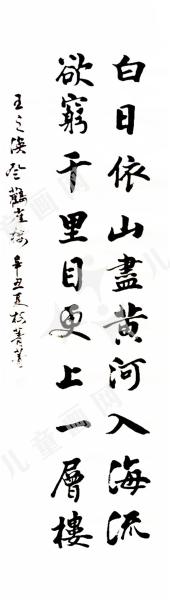 白日依山盡黄河入海流
欲窮千里目更上一層樓
王之渙登鸛雀樓 辛丑夏